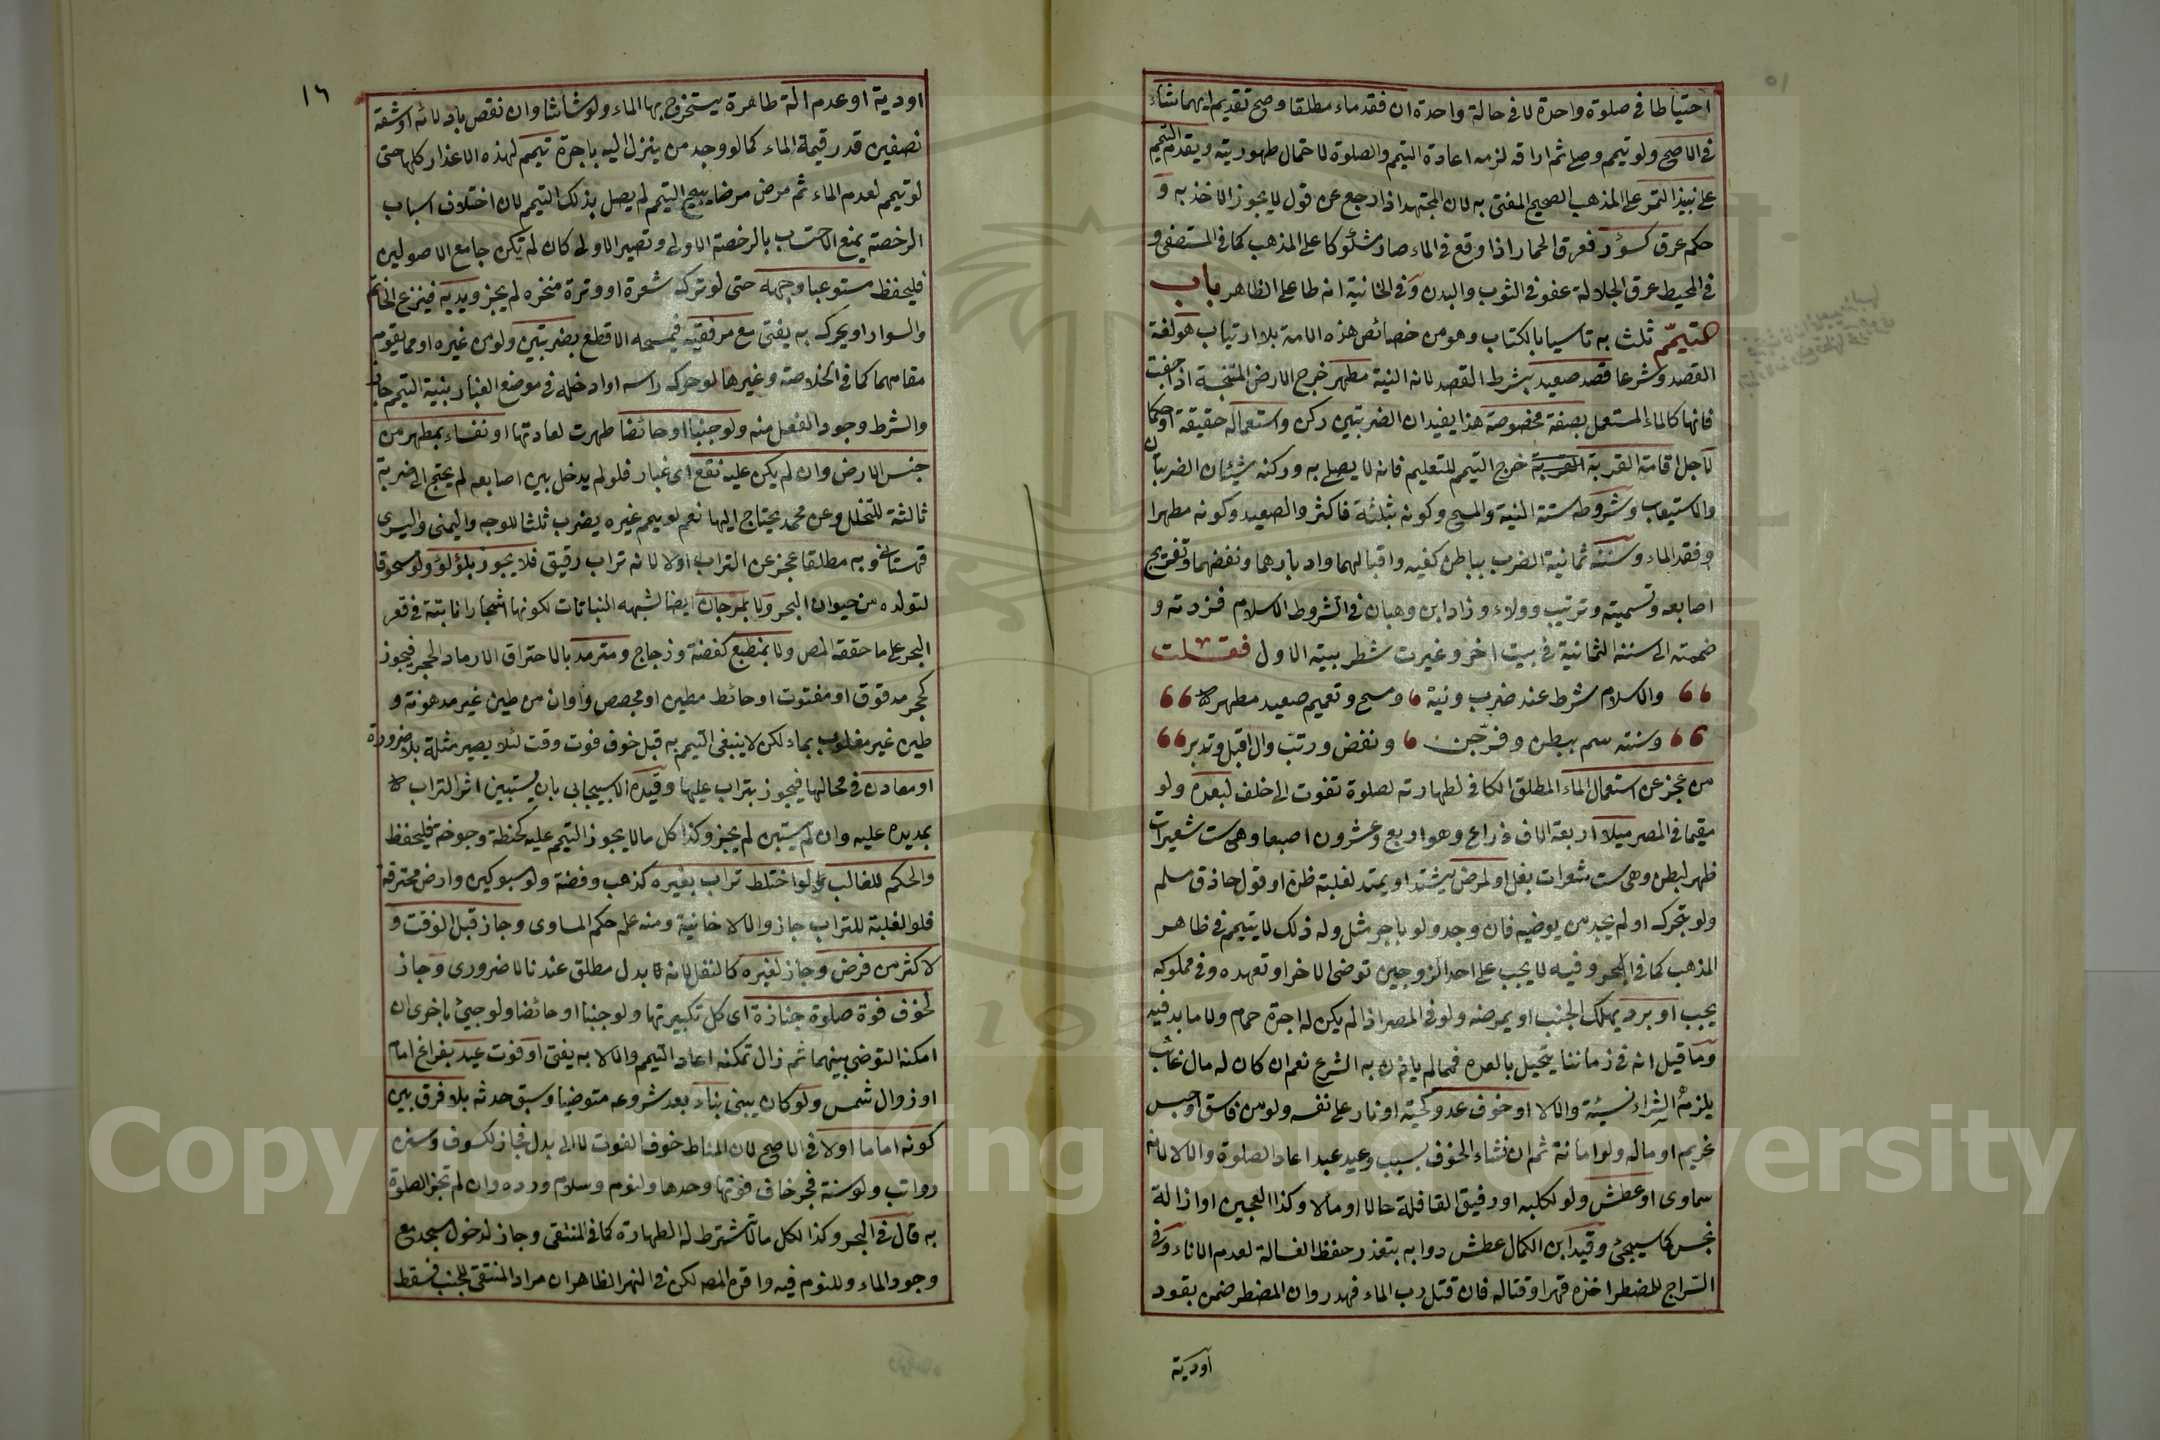 احتياطا في صلوة واحدة لا في حالة واحدة ان فقد ماء مطلقا وصح تقديم ايهما شاء
في الاصح ولو تيمم وصلى ثم اراقه لزمه اعادة التيمم والصلوة لاحتمال طهوريته ويقدم التيمم
على نبيذ التمر على المذهب الصحيح المفتى به لان المجتهد اذا رجع عن قول لا يجوز الاخذ به و
حكم عرق كسؤر فعرق الحمار اذا وقع في الماء صار مشكوكا على المذهب كما في المستصفى و
في المحيط عرق الجلالة عفو في الثوب والبدن وفي الخانية انه طاعلى الظاهر باب
التيمم ثلث به تاسيا بالكتاب وهو من خصائص هذه الامة بلا ارتياب هو لغة
القصد وشرعا قصد صعيد بشرط القصد لانه النية مطهر خرج الارض المتنجسة اذا جفت
فانها كالماء المستعمل بصفة مخصوصة هذا يفيد ان الضربتين ركن واستعماله حقيقة او حكما
لاجل اقامة القربة خرج التيمم للتعليم فانه لا يصلى به وركنه شيئان الضربتان
والاستيعاب وشروطه ستة النية والمسح وكونه بثلثة فاكثر والصعيد وكونه مطهرا
وفقد الماء وسننه ثمانية الضرب بباطن كفيه واقبالهما وادبارهما ونفضهما وتفريج
اصابعه وتسمية وترتيب وولاء وزاد ابن وهبان في الشروط الاسلام فزدته و
ضممته الى سننه الثمانية في بيت اخر وغيرت شطر بيته الاول فقلت
والاسلام شرط عند ضرب ونية ومسح وتعميم صعيد مطهر
وسنته سم ببطن وفرجن ونفض ورتب وال اقبل وتدبر
من عجز عن استعمال الماء المطلق الكافي لطهارته لصلوة تفوت الى خلف لبعده ولو
مقيما في المصر ميلا اربعة الاف ذراع وهو اربع وعشرون اصبعا وهي ست شعيرات
ظهر لبطن وهي ست شعرات بغل او لمرض يشتد او يمتد لغلبة ظن او قول حاذق مسلم
ولو بتحرك او لم يجد من يوضيه فان وجد ولو باجر مثل وله ذلك لا يتيمم في ظاهر
المذهب كما في البحر وفيه لا يجب على احد الزوجين توضى الاخر او تعهده وفي مملوكه
يجب او برد يهلك الجنب او يمرضه ولو في المصر اذا لم يكن له اجرة حمام ولا ما يدفيه
وما قيل انه في زماننا يتحيل بالعدة فمما لم ياذن به الشرع نعم ان كان له مال غائب
يلزمه الشراء نسيئة والا لا او خوف عدو كحية او نار على نفسه ولو من فاسق او حبس
غريم او ماله ولو امانة ثم ان نشاء الخوف بسبب وعيد عبد اعاد الصلوة والا لا لانه
سماوى او عطش ولو لكلبه او رفيق القافلة حالا او مالا وكذا العجين او ازالة
نجس كما سيجئ وقيد ابن الكمال عطش دوابه بتعذر حفظ الغسالة لعدم الاناء وفي
السراج للمضطر اخذه قهرا وقتاله فان قتل رب الماء فهدر وان المضطر ضمن بقود
اودية
١٦
اودية او عدم الة طاهرة يستخرج بها الماء ولو شاشا وان نقص بادلائه او شقه
نصفين قدر قيمة الماء كما لو وجد من ينزل اليه باجرة تيمم لهذه الاعذار كلها حتى
لو تيمم لعدم الماء ثم مرض مرضا يبيح التيمم لم يصل بذلك التيمم لان اختلاف اسباب
الرخصة يمنع الاحتساب بالرخصة الاولى وتصير الاولى كان لم تكن جامع الاصولين
فليحفظ مستوعبا وجهه حتى لو ترك شعرة او وترة منخره لم يجز ويديه فينزع الخاتم
والسوار او يحرك به يفتى مع مرفقيه فيمسحه الاقطع بضربتين ولو من غيره او مما يقوم
مقامهما كما في الخلاصة وغيرها لو حرك راسه او ادخله في موضع الغبار بنية التيمم جاز
والشرط وجود الفعل منه ولو جنبا او حائضا طهرت لعادتها او نفساء بمطهر من
جنس الارض وان لم يكن عليه نقع اى غبار فلو لم يدخل بين اصابعه لم يحتج الى ضربة
ثالثة للتخلل وعن محمد يحتاج اليها نعم لو يمم غيره يضرب ثلثا للوجه واليمنى واليسرى
قهستاني وبه مطلقا عجز عن التراب اولا لانه تراب رقيق فلا يجوز بلؤلؤ ولو مسحوقا
لتولده من حيوان البحر ولا بمرجان ايضا لشبهه النباتات لكونها اشجارا نابتة في قعر
البحر على ما حققه المص ولا بمنطبع كفضة وزجاج ومترمد بالاحتراق الا رماد الحجر فيجوز
كحجر مدقوق او مفتوت او حائط مطين او مجصص واوان من طين غير مدهونة و
طين غير مغلوب بماء لكن لا ينبغي التيمم به قبل خوف فوت وقت لئلا يصير مثلة بلا ضرورة
او معادن في محالها فيجوز بتراب عليها وقيده الاسبيجابي بان يستبين اثر التراب
بمد يده عليه وان لم يستبن لم يجز وكذا كل ما لا يجوز التيمم عليه كحنطة وجوخة فليحفظ
والحكم للغالب لو اختلط تراب بغيره كذهب وفضة ولو مسبوكين وارض محترقة
فلو الغلبة للتراب جاز والا لا خانية ومنه علم حكم المساوى وجاز قبل الوقت و
لاكثر من فرض وجاز لغيره كالنفل لانه بدل مطلق عندنا لا ضرورى وجاز
لخوف فوة صلوة جنازة اى كل تكبيرتها ولو جنبا او حائضا ولو جيئ باخرى ان
امكنه التوضى بينهما ثم زال تمكنه اعاد التيمم والا لا به يفتى او فوت عيد بفراغ امام
او زوال شمس ولو كان يبني بناء بعد شروعه متوضيا وسبق حدثه بلا فرق بين
كونه اماما اولا في الاصح لان المناط خوف الفوت لا الى بدل فجاز لكسوف وسنن
رواتب ولو سنة فجر خاف فوتها وحدها ولنوم وسلام ورده وان لم تجز الصلوة
به قال في البحر وكذا لكل ما لا تشترط له الطهارة كما في المنتقى وجاز لدخول مسجد مع
وجود الماء وللنوم فيه واقره المص لكن في النهر الظاهر ان مراد المنتقى للجنب فسقط